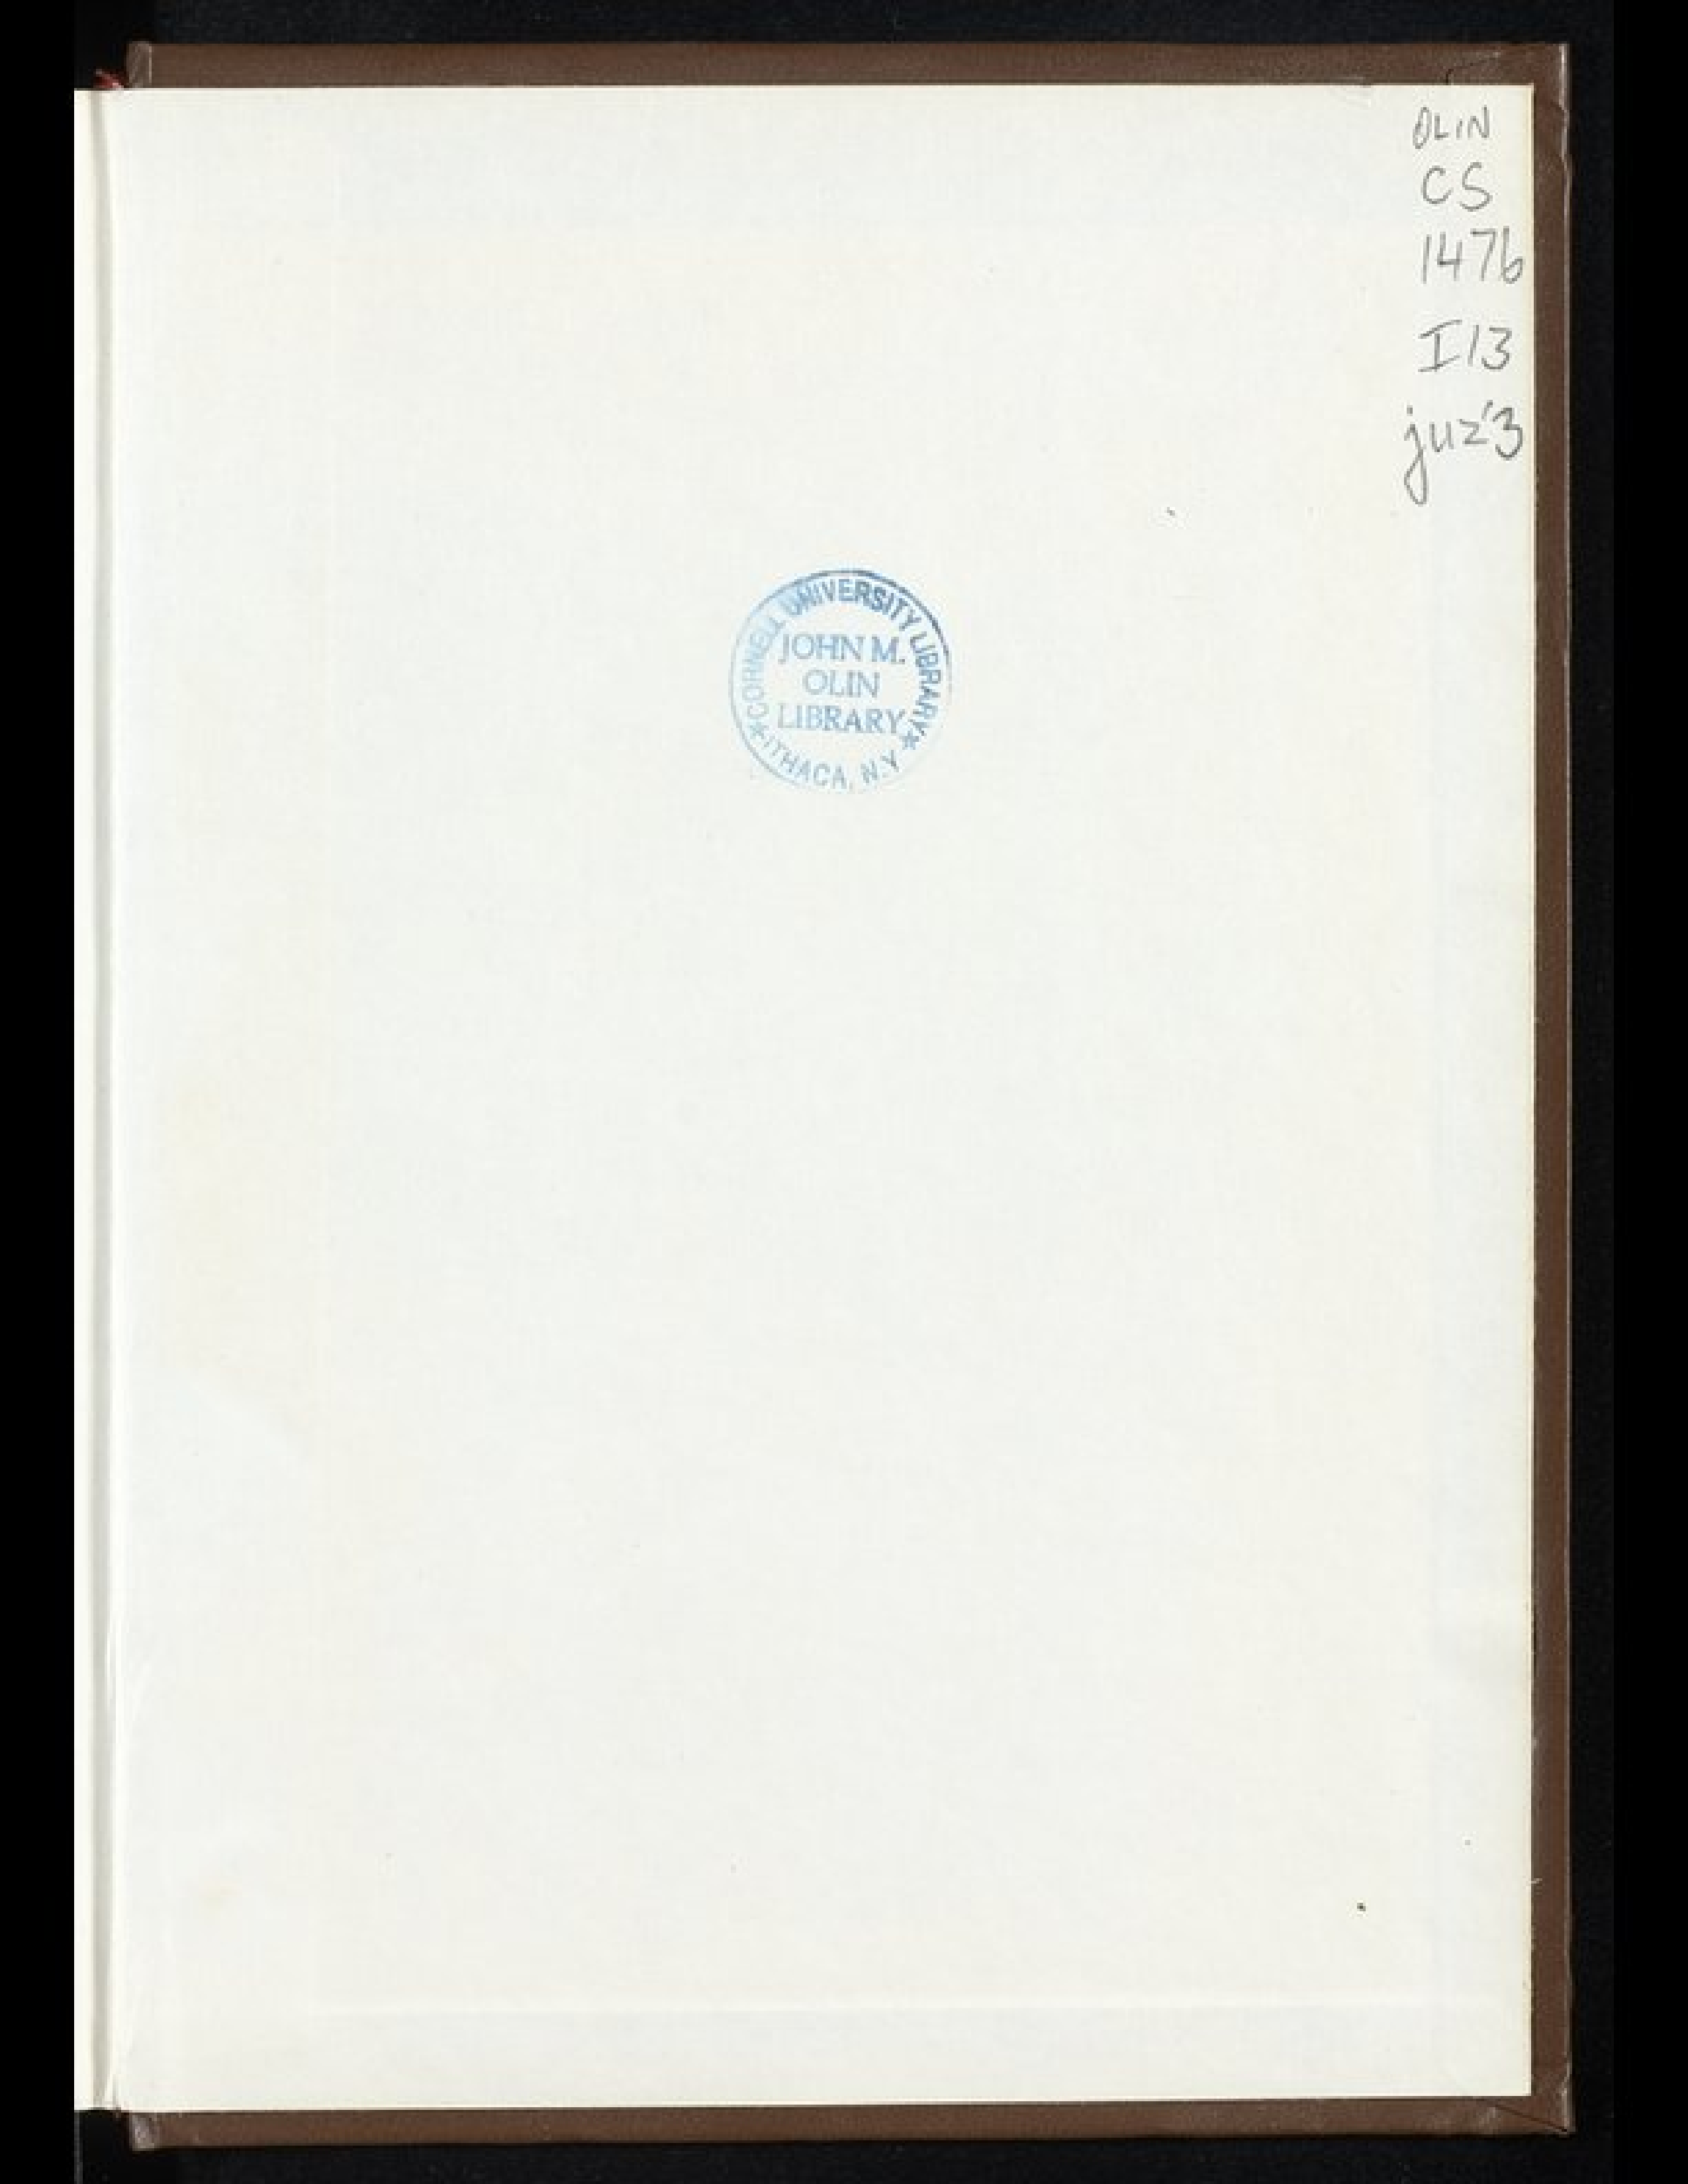 OLIN
CS
1476
I13
juz'3
CORNELL UNIVERSITY LIBRARY
JOHN M.
OLIN
LIBRARY
ITHACA, N.Y